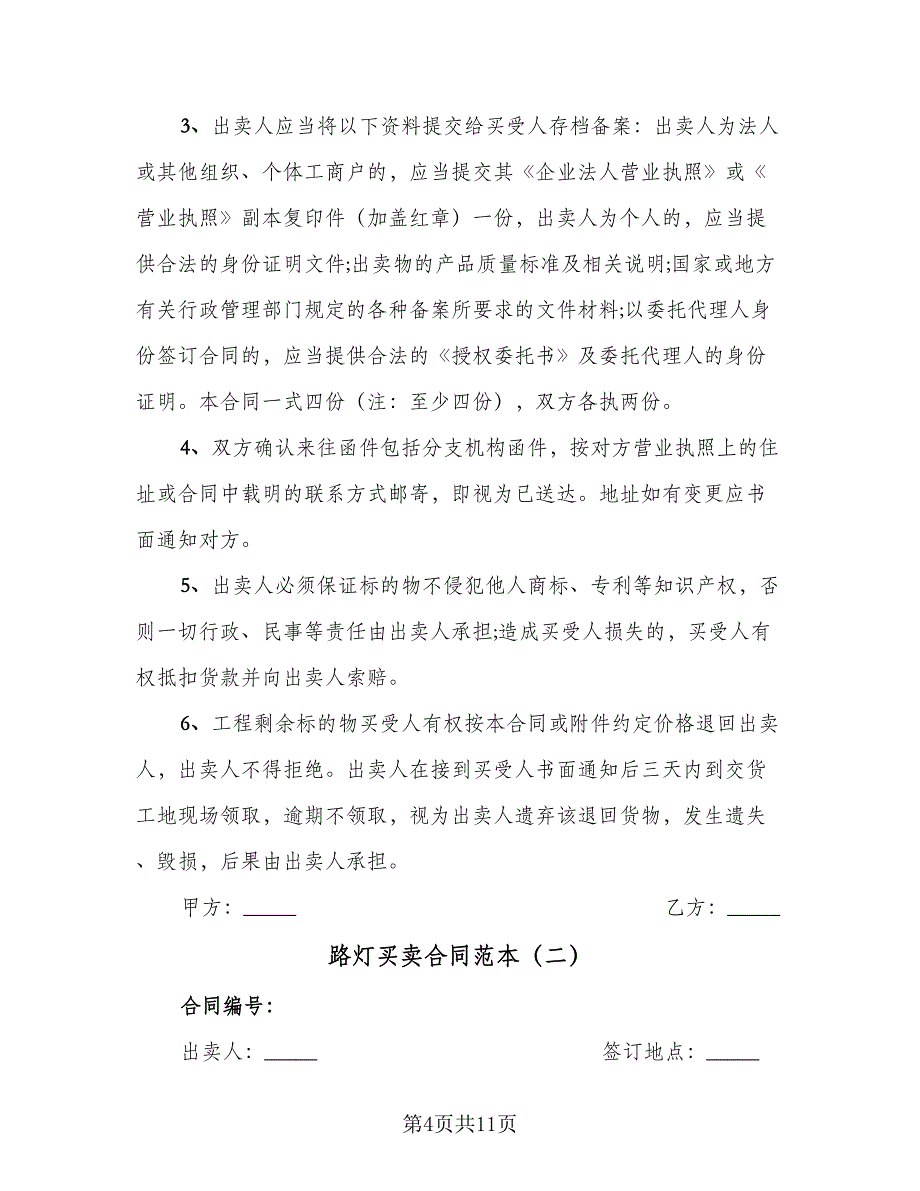 3、出卖人应当将以下资料提交给买受人存档备案：出卖人为法人
或其他组织、个体工商户的，应当提交其《企业法人营业执照》或《
营业执照》副本复印件（加盖红章）一份，出卖人为个人的，应当提
供合法的身份证明文件;出卖物的产品质量标准及相关说明;国家或地方
有关行政管理部门规定的各种备案所要求的文件材料;以委托代理人身
份签订合同的，应当提供合法的《授权委托书》及委托代理人的身份
证明。本合同一式四份（注：至少四份），双方各执两份。
4、双方确认来往函件包括分支机构函件，按对方营业执照上的住
址或合同中载明的联系方式邮寄，即视为已送达。地址如有变更应书
面通知对方。
5、出卖人必须保证标的物不侵犯他人商标、专利等知识产权，否
则一切行政、民事等责任由出卖人承担;造成买受人损失的，买受人有
权抵扣货款并向出卖人索赔。
6、工程剩余标的物买受人有权按本合同或附件约定价格退回出卖
人，出卖人不得拒绝。出卖人在接到买受人书面通知后三天内到交货
工地现场领取，逾期不领取，视为出卖人遗弃该退回货物，发生遗失
、毁损，后果由出卖人承担。
甲方：_____ 乙方：_____
路灯买卖合同范本（二）
合同编号：
出卖人：_____ 签订地点：_____
第4页共11页